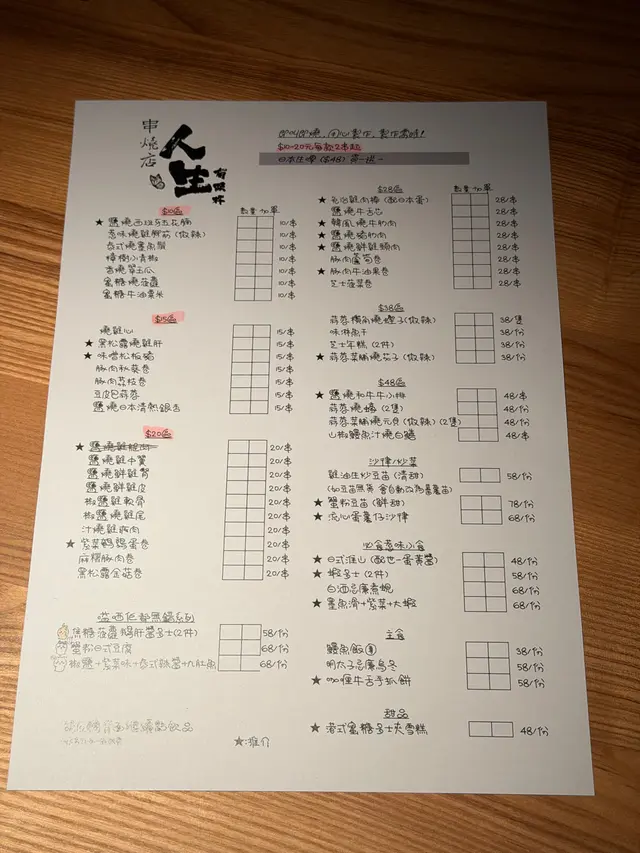 串燒店
人生
即叫即燒，用心製作，製作需時！
$10-20元每款2串起
日本生啤 ($48) 買一送一
$10區
數量 加單
★ 鹽燒西班牙五花腩 10/串
惹味燒雞脾菇(微辣) 10/串
泰式燒墨魚鬚 10/串
樟樹小青椒 10/串
香燒翠玉瓜 10/串
蜜糖燒菠蘿 10/串
蜜糖牛油粟米 10/串
$15區
燒雞心 15/串
★ 黑松露燒雞肝 15/串
★ 味噌松板豬 15/串
豚肉秋葵卷 15/串
豚肉荔枝卷 15/串
豆皮包蒜蓉 15/串
鹽燒日本清熱銀杏 15/串
$20區
★ 鹽燒雞腿肉 20/串
鹽燒雞中翼 20/串
鹽燒鮮雞腎 20/串
鹽燒鮮雞皮 20/串
椒鹽燒雞軟骨 20/串
椒鹽燒雞尾 20/串
汁燒雞頸肉 20/串
★ 紫菜鵪鶉蛋卷 20/串
麻糬豚肉卷 20/串
黑松露金菇卷 20/串
焦糖菠蘿鵝肝醬多士(2件) 58/份
蟹粉日式豆腐 68/份
椒鹽+紫菜味+泰式辣醬+九肚魚 68/份
★:推介
$28區
數量 加單
★ 免治雞肉棒(配日本蛋) 28/串
鹽燒牛舌芯 28/串
★ 韓風燒牛肋肉 28/串
★ 鹽燒豬肋肉 28/串
★ 鹽燒鮮雞腩肉 28/串
豚肉蘆筍卷 28/串
★ 豚肉牛油果卷 28/串
芝士菠菜卷 28/串
$38區
蒜蓉橫角燒蟶子(微辣) 38/隻
味淋魚干 38/份
芝士年糕 (2件) 38/份
★ 蒜蓉菜脯燒茄子(微辣) 38/份
$48區
★ 鹽燒和牛牛小排 48/串
蒜蓉燒蠔 (2隻) 48/份
蒜蓉菜脯燒元貝(微辣)(2隻) 48/份
山椒鰻魚汁燒白鱔 48/串
沙律/炒菜
雞油生炒豆苗(清甜) 58/份
(如豆苗無貨 會自動改為番薯苗)
★ 蟹粉豆苗(鮮甜) 78/份
★ 流心蛋薯仔沙律 68/份
必食惹味小食
★ 日式淮山(配世一蛋黃醬) 48/份
★ 蝦多士(2件) 58/份
白酒忌廉煮蜆 68/份
★ 墨魚滑+紫菜+大蝦 68/份
主食
鰻魚飯 38/份
明太子忌廉烏冬 58/份
★ 咖喱牛舌手抓餅 58/份
甜品
★ 港式蜜糖多士夾雪糕 48/份